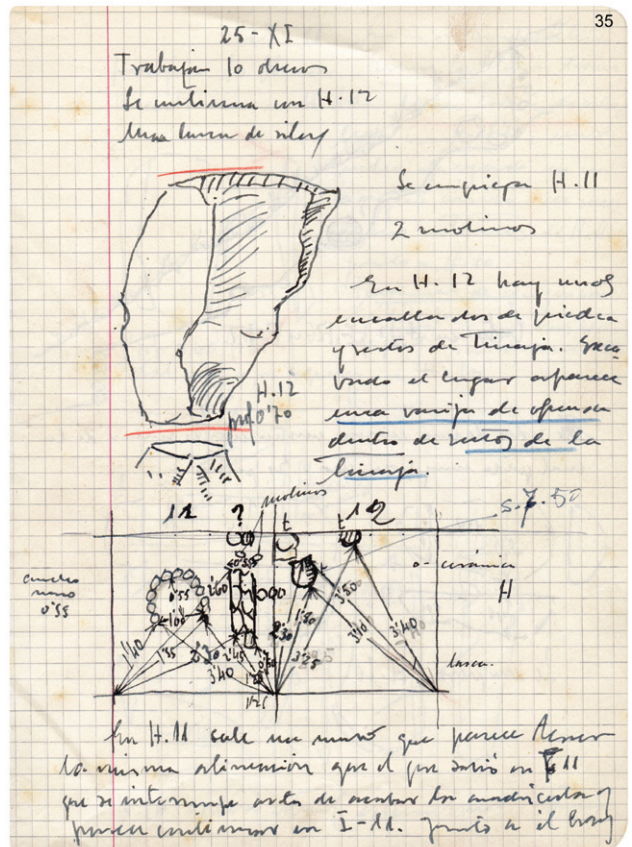 35
25-XI
Trabajan 10 obreros
Se continua con H.12
Una lasca de silex
Se empieza H.11
2 molinos
En H.12 hay unos
encallados de piedra
y restos de Tinaja. Exca
vado el lugar aparece
una vasija de ofrenda
dentro de restos de la
tinaja.
H.12
prof 0'70
molinos
s.7.50
11 ? t t 12
ancho
muro
0'55
o- cerámica
H
0'55
1'00
2'60
1'40
1'55
2'30
2'45
3'40
2'30
1'80
3'25
3'50
3'10
3'40
lasca.
En H.11 sale un muro que parece llevar
la misma alineación que el que salió en 11
que se interrumpe antes de acabar la cuadricula y
parece continuar en I-11. Junto a el hay